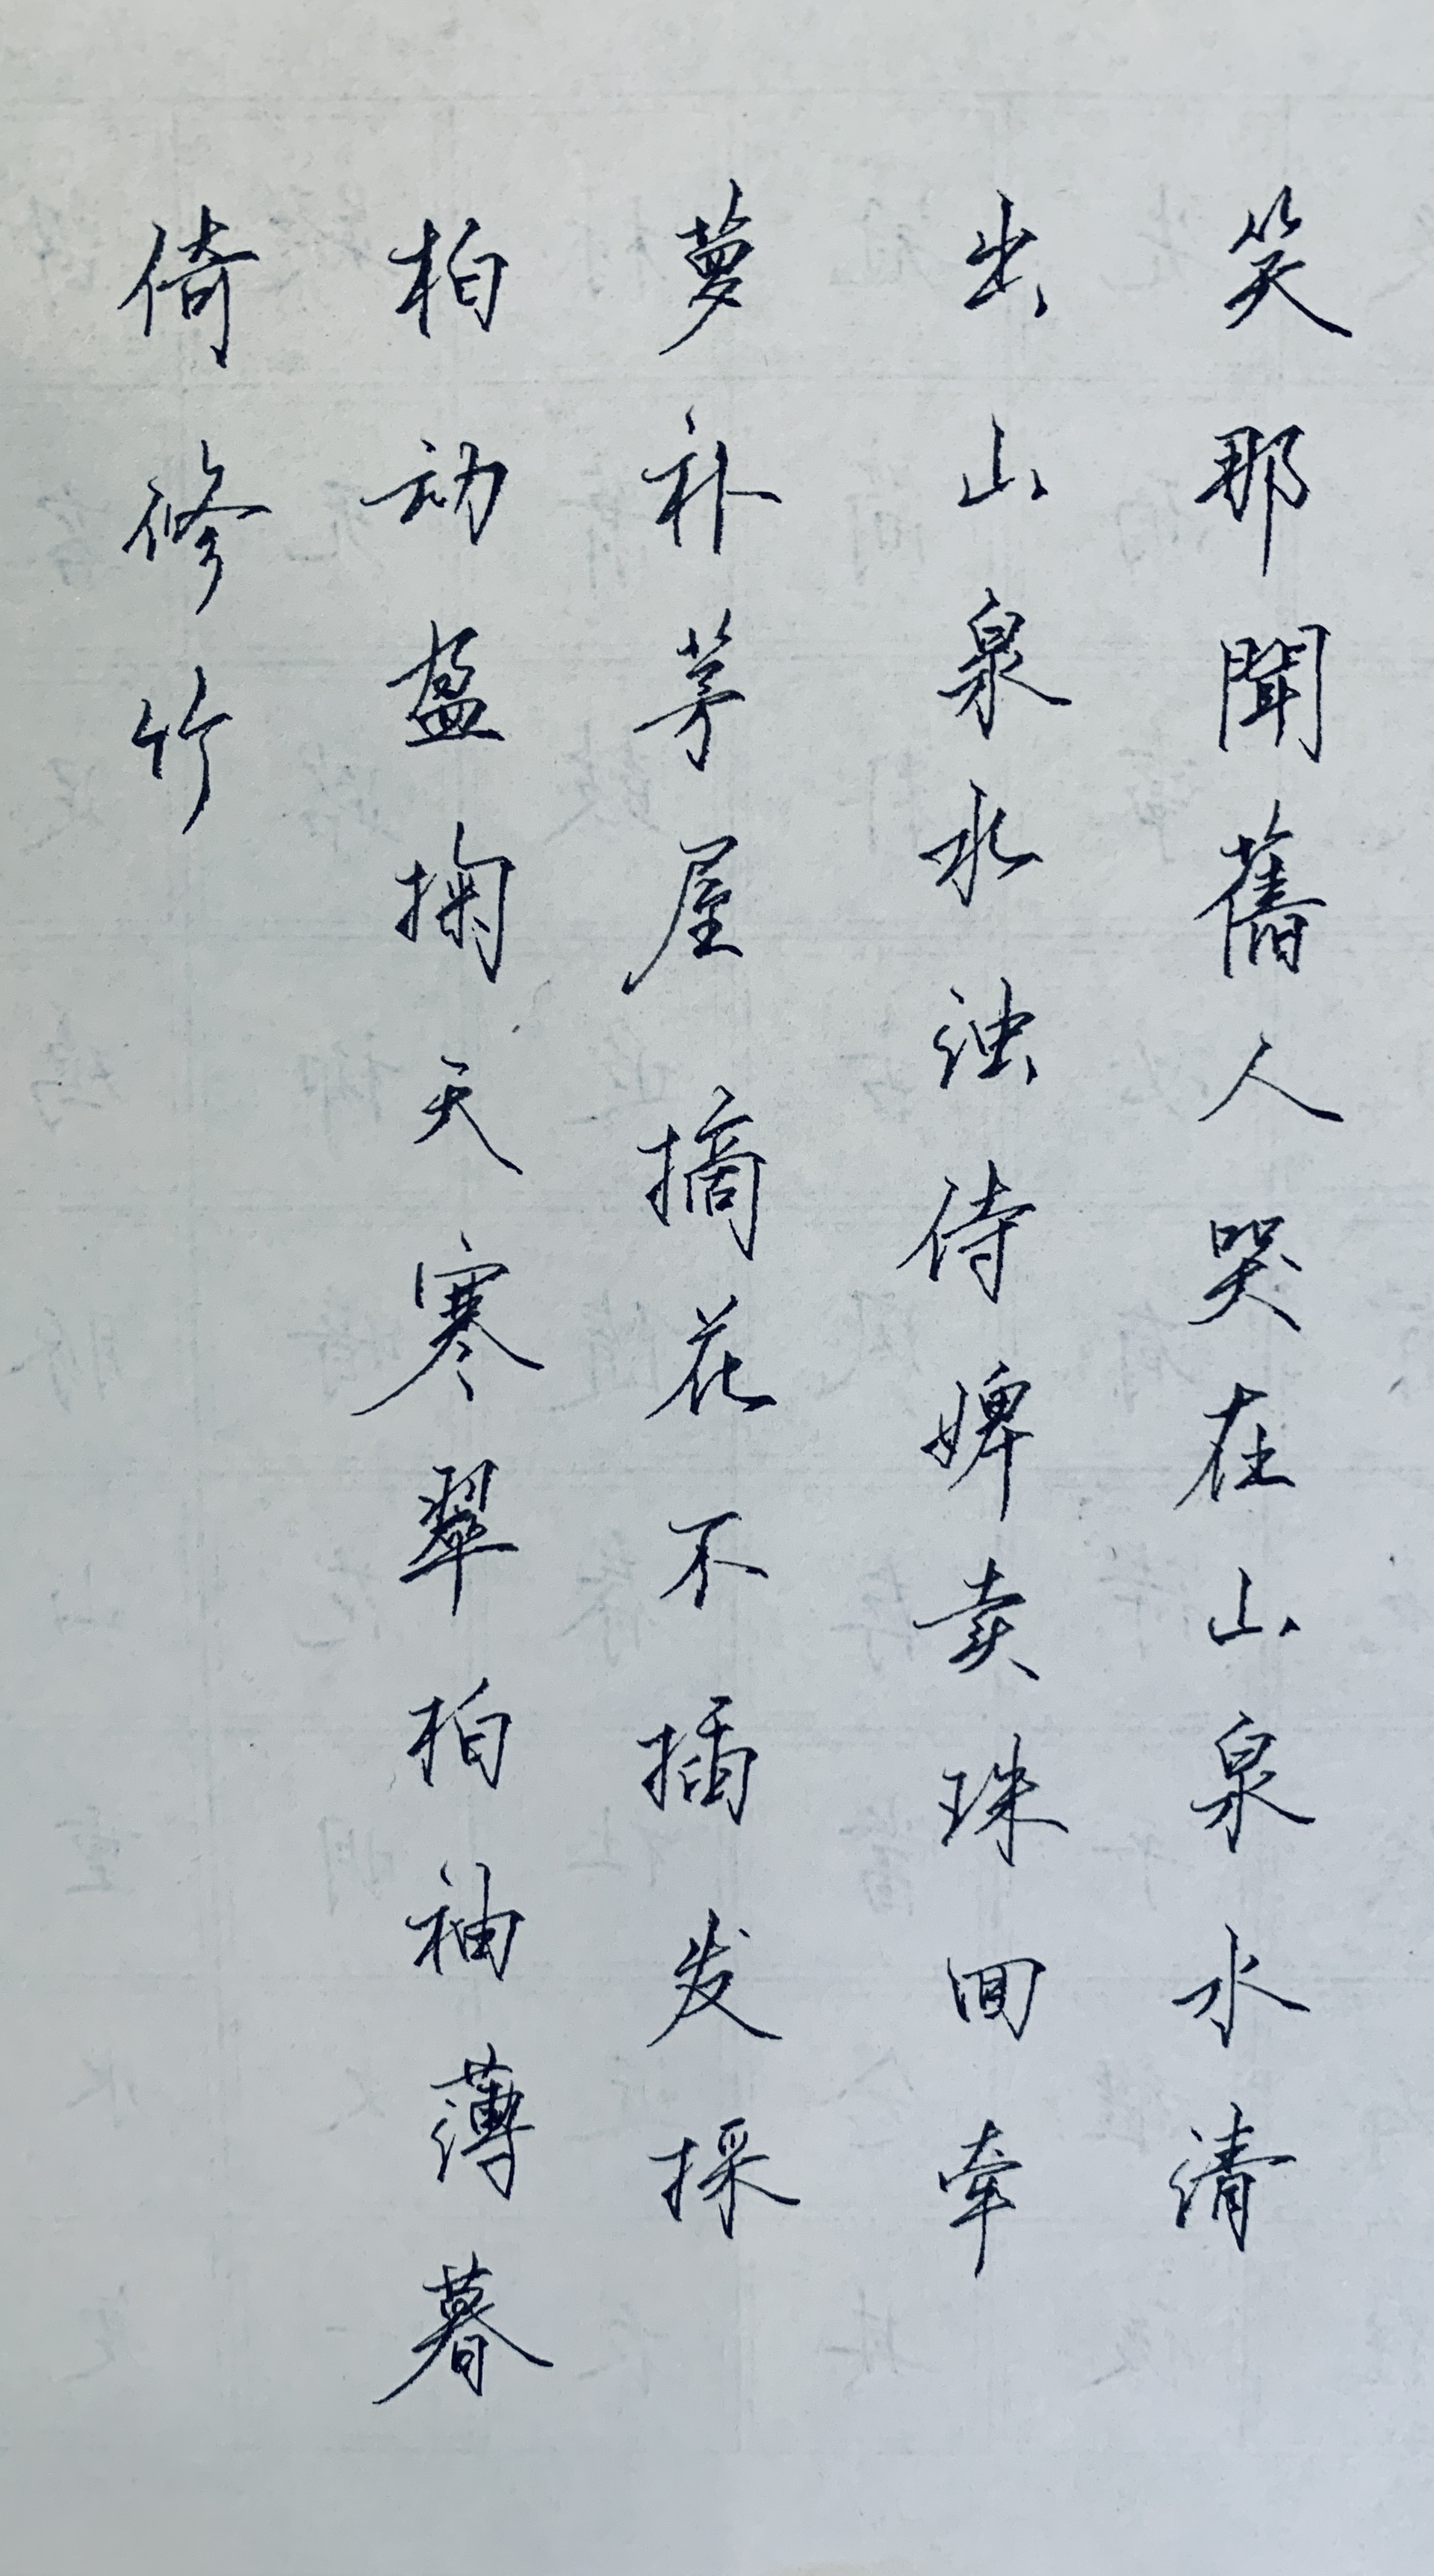 笑那聞舊人哭在山泉水清
出山泉水浊侍婢卖珠回牵
萝补茅屋摘花不插发採
柏动盈掬天寒翠柏袖薄暮
倚修竹